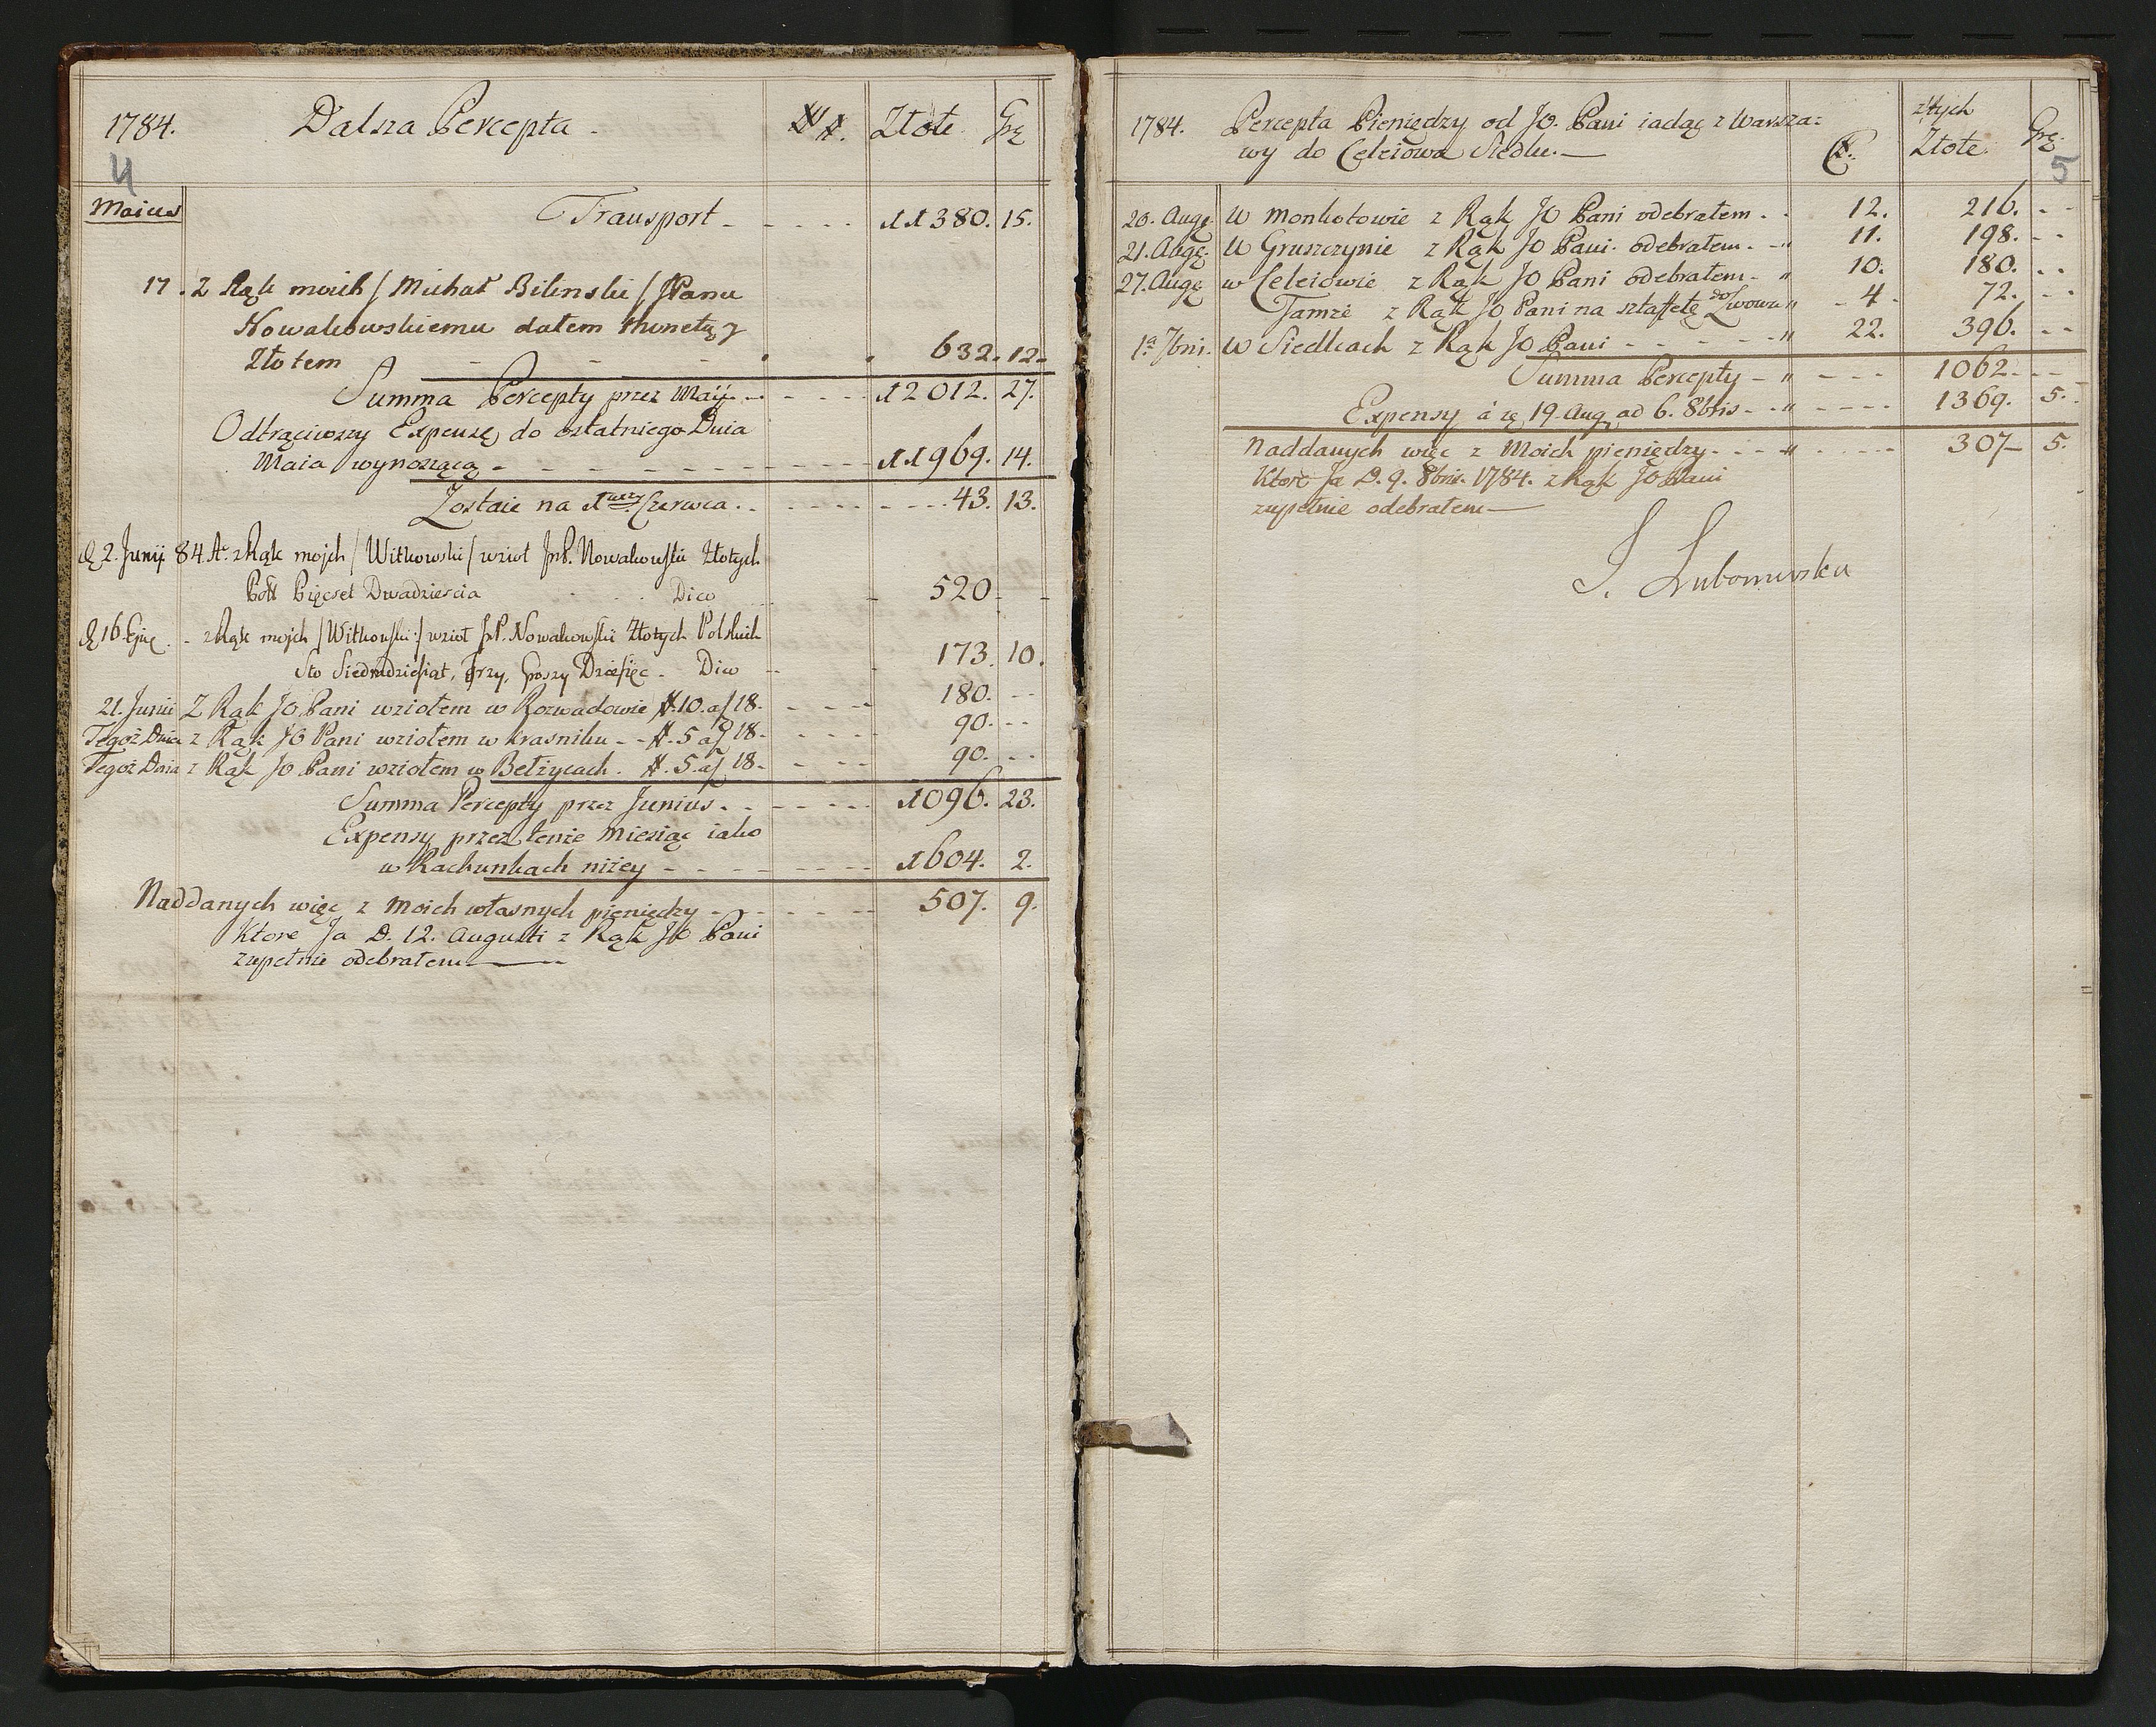 1784. Dalsza Percepta. Złote. Grę
4
Maius
Transport - - - - - 11380. 15.
17. Z Rąk moich / Michał Bilinski / JPanu
Nowakowskiemu dałem Monetą z
Złotem - - - - 632. 12-
Summa Percepty przez Maij - - - - 12012. 27.
Odtrąciwszy Expensę do ostatniego Dnia
Maia wynoszącą - - - - - - - - 11969. 14.
Zostaie na 1wszy Czerwca - - - - - - 43. 13.
d 2. Junij 84. A. z Rąk mojch / Witkowski / wzioł JmP. Nowakowski Złotych
Pols Pięcset Dwadziescia Dico - 520 - -
d 16. Ejus. - z Rąk mojch / Witkowski / wzioł JmP. Nowakowski Złotych Polskich
Sto Siedmdziesiąt, Trzy, Groszy Dziesięc - Dico - 173. 10.
21. Junii Z Rąk JO Pani wziołem w Rozwadowie #. 10. af 18. - - - - 180. - -
Tegoż Dnia z Rąk JO Pani wziołem w Krasniku - - #. 5 af 18 - - - - - 90. - -
Tegoż Dnia z Rąk JO Pani wziołem w Bełżycach. #. 5. af 18. - - - - 90. - -
Summa Percepty przez Junius - - - - - - 1096. 23.
Expensy przez tenże Miesiąc iako
w Rachunkach niżey - - - - - - - - 1604. 2.
Naddanych więc z Moich własnych pieniędzy - - - - - - 507. 9.
Ktore Ja D. 12. Augusti z Rąk JO Pani
zupełnie odebrałem
1784. Percepta Pieniędzy od JO. Pani iadąc z Warsza=
wy do Celeiowa Siedlu. złtych Złote. Grę.
5
20. Augę. W Monkotowie z Rąk JO Pani odebrałem. - 12. 216. - -
21. Augę. W Gruszczynie z Rąk JO Pani. odebrałem. - " 11. 198. - -
27. Augę w Celeiowie z Rąk JO Pani odebrałem - " 10. 180. - -
Tamże z Rąk JO Pani na sztaffetę do Lwowa " - 4 - 72. - -
1a 7bris. W Siedlcach z Rąk JO Pani - - - - - - " 22. 396. - -
Summa Percepty - " - - - 1062 - - -
Expensy à 19. Aug ad 6. 8bris - - " - - - - 1369. 5.
Naddanych więc z Moich pieniędzy - - - " - - - - - 307- 5.
Ktore Ja D. 9. 8bris. 1784. z Rąk JO Pani
zupełnie odebrałem
I. Lubomirska